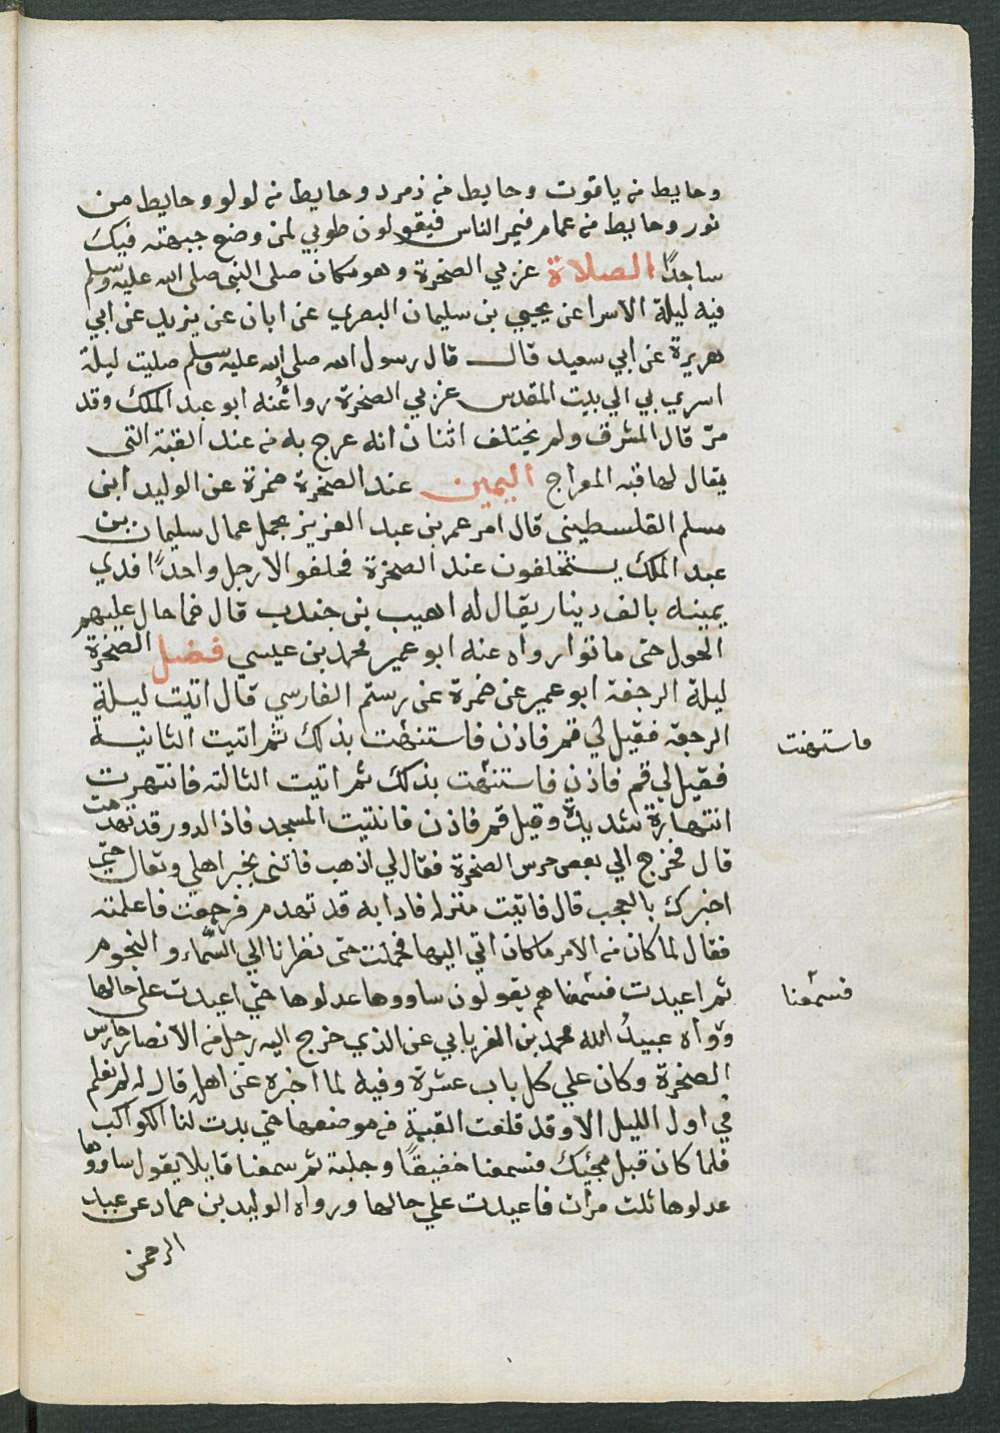 وحايط من ياقوت وحايط من زمرد وحايط من لولو وحايط من
نور وحايط من غمام فيمر الناس فيقولون طوبي لمن وضع جبهته فيك
ساجدًا الصلاة عزبي الصخرة وهو مكان صلى النبي صلى الله عليه وسلم
فيه ليلة الاسرا عن يحيي بن سليمان البصري عن ابان عن يزيد عن ابي
هريرة عن ابي سعيد قال قال رسول الله صلى الله عليه وسلم صليت ليلة
اسري بي الي بيت المقدس عزبي الصخرة رواه عنه ابو عبد الملك وقد
مرّ قال المشرف ولم يختلف اثنان انه عرج به من عند القبة التي
يقال لها قبة المعراج اليمين عند الصخرة ضمرة عن الوليد ابن
مسلم الفلسطيني قال امر عمر بن عبد العزيز بحمل عمال سليمان بن
عبد الملك يستحلفون عند الصخرة فحلفو الا رجل واحدًا فدي
يمينه بالف دينار يقال له اهيب بن جندب قال فما حال عليهم
الحول حتى ماتوا رواه عنه ابو عمير محمد بن عيسي فضل الصخرة
ليلة الرجفة ابو عمير عن ضمرة عن رستم الفارسي قال اتيت ليلة
الرجفة فقيل لي قم فاذن فاستنهت بذلك ثم اتيت الثانية
فاستهنت
فقيل لي قم فاذن فاستنهت بذلك ثم اتيت الثالثه فانتهرت
انتهارة شديدة وقيل قم فاذن فاتيت المسجد فاذا الدور قد تهدمت
قال فخرج الي بعض حرس الصخرة فقال لي اذهب فاتني بخبر اهلي وتعال حتى
اخبرك بالعجب قال فاتيت منزله فاذا به قد تهدم فرجعت فاعلمته
فقال لما كان من الامر ما كان اتي اليها فحملت حتى نظرنا الي السماء والنجوم
ثم اعيدت فسمعناهم يقولون ساووها عدلوها حتى اعيدت على حالها
فسمعنا
ورواه عبيد الله محمد بن الفريابي عن الذي خرج اليه رجل من الانصار حارس
الصخرة وكان علي كل باب عشرة وفيه لما اخبره عن اهله قال له لم نعلم
في اول الليل الا وقد قلعت القبة من موضعها حتى بدت لنا الكواكب
فلما كان قبل مجيئك فسمعنا خفيقًا وجلبة ثم سمعنا قايلا يقول ساووها
عدلوها ثلث مرات فاعيدت علي حالها ورواه الوليد بن حماد عن عبد
الرحمن